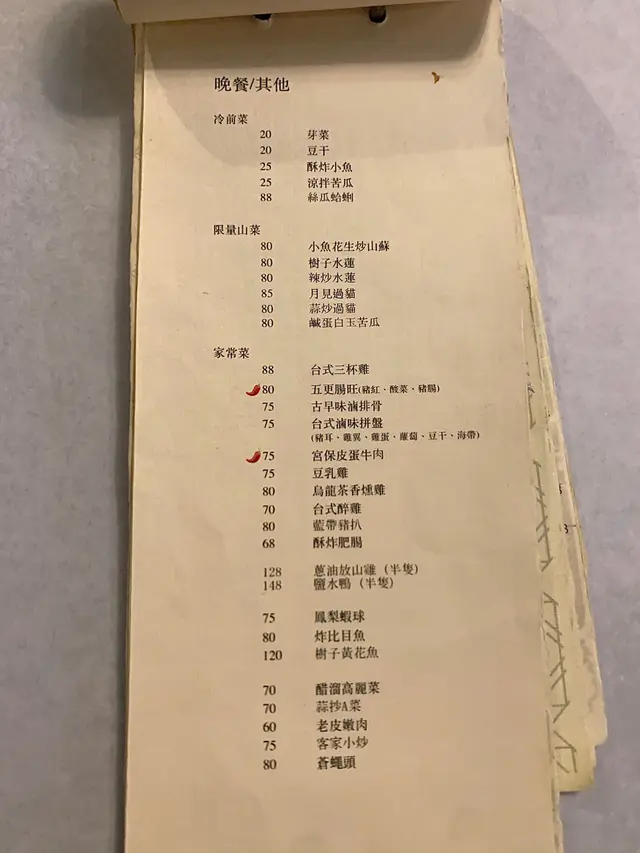 晚餐/其他
冷前菜
20 芽菜
20 豆干
25 酥炸小魚
25 涼拌苦瓜
88 絲瓜蛤蜊
限量山菜
80 小魚花生炒山蘇
80 樹子水蓮
80 辣炒水蓮
85 月見過貓
80 蒜炒過貓
80 鹹蛋白玉苦瓜
家常菜
88 台式三杯雞
80 五更腸旺(豬紅、酸菜、豬腸)
75 古早味滷排骨
75 台式滷味拼盤
(豬耳、雞翼、雞蛋、蘿蔔、豆干、海帶)
75 宮保皮蛋牛肉
75 豆乳雞
80 烏龍茶香燻雞
70 台式醉雞
80 藍帶豬扒
68 酥炸肥腸
128 蔥油放山雞 (半隻)
148 鹽水鴨 (半隻)
75 鳳梨蝦球
80 炸比目魚
120 樹子黃花魚
70 醋溜高麗菜
70 蒜抄A菜
60 老皮嫩肉
75 客家小炒
80 蒼蠅頭